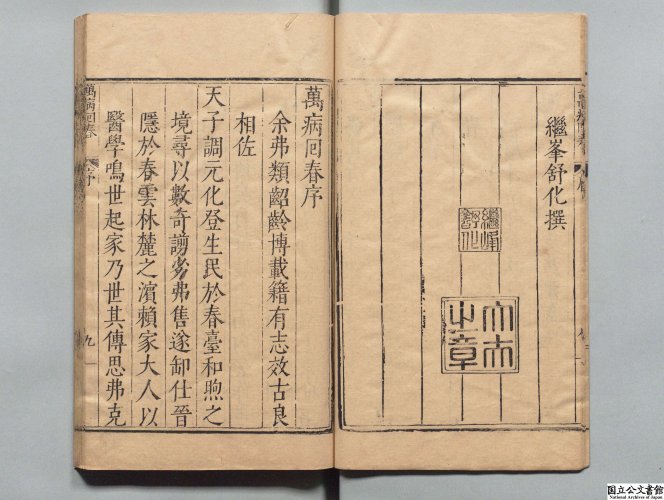 繼峯舒化撰
萬病回春序
余弗類齠齡博載籍有志效古良
相佐
天子調元化登生民於春臺和煦之
境尋以數奇謭劣弗售遂卸仕晉
隱於春雲林麓之濵賴家大人以
醫學鳴世起家乃世其傳思弗克
萬病回春
序
九
国立公文書館
National Archives of Japan